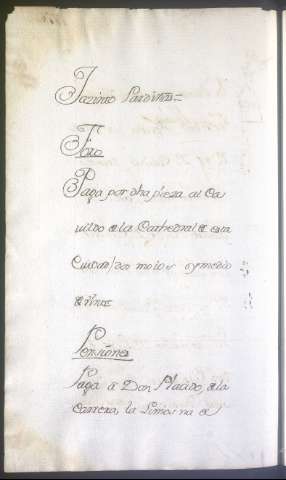 Jazinto Pardiñas=
Foro
Paga por dha pieza al Ca
uildo de la Cathedral de esta
Ciudad dos moios y medio
de vino
Pensiones
Paga á Don Plazido de la
Carrera, la Limosna de